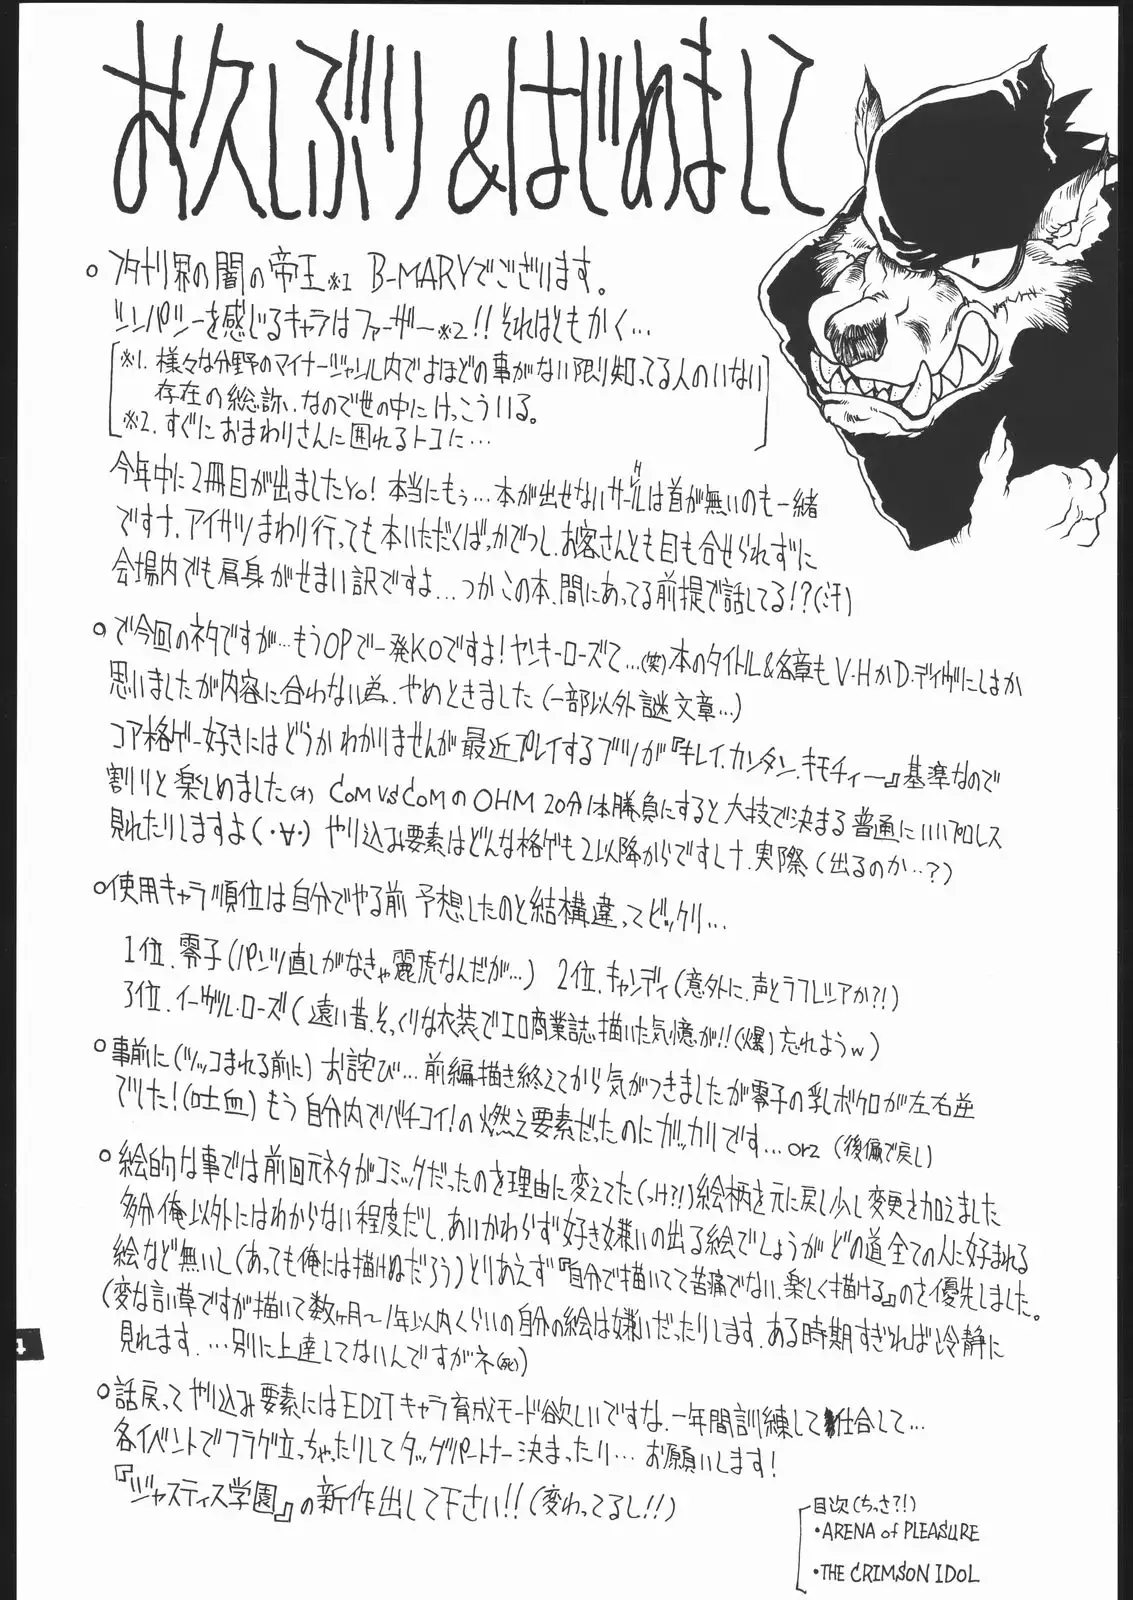 お久しぶり&はじめまして
○フタナリ界の闇の帝王※1 B-MARYでございます。
シンパシーを感じるキャラはファーザー※2!!それはともかく…
※1. 様々な分野のマイナージャンル内でよほどの事がない限り知ってる人のいない
存在の総称、なので世の中にけっこういる。
※2. すぐにおまわりさんに囲れるトコに…
今年中に2冊目が出ましたYo!本当にもう…本が出せないサークルは首が無いのも一緒
ですナ.アイサツまわり行っても本いただくばっかでつし.お客さんとも目も合せられずに
会場内でも肩身がせまい訳ですよ…つかこの本、間にあってる前提で話してる!?(汗)
○で今回のネタですが…もうOPで一発KOですよ!ヤンキーローズて…(笑)本のタイトル&各章もV・HかD・デイヴにしまか
思いましたが内容に合わない為、やめときました(一部以外謎文章…)
コア格ゲー好きにはどうかわかりませんが最近プレイするブツが『キレイ、カンタン、キモチィー』基準なので
割りと楽しめました(オ) COM VS COMのOHM 20分1本勝負にすると大技で決まる普通にいいプロレス
見れたりしますよ(・∀・) やり込み要素はどんな格ゲも2以降からですしナ.実際(出るのか…?)
○使用キャラ順位は自分でやる前予想したのと結構違ってビックリ…
1位.零子(パンツ直しがなきゃ麗虎なんだが…) 2位.キャンディ(意外に、声とラフレシアか?!)
3位.イーヴル・ローズ(遠い昔.そっくりな衣装でエロ商業誌描いた気憶が!!(爆)忘れようw)
○事前に(ツッコまれる前に)お詫び…前編描き終えてから気がつきましたが零子の乳ボクロが左右逆
でした!(吐血)もう自分内でバチコイ!の燃え要素だったのにガッカリです…orz(後編で戻し)
○絵的な事では前回元ネタがコミックだったのを理由に変えてた(っけ?!)絵柄を元に戻し少し変更を加えました
多分俺以外にはわからない程度だし.あいかわらず好き嫌いの出る絵でしょうがどの道全ての人に好まれる
絵など無いし(あっても俺には描けぬだろう)とりあえず『自分で描いてて苦痛でない、楽しく描ける』のを優先しました。
(変な言い草ですが描いて数ヶ月〜1年以内くらいの自分の絵は嫌いだったりします.ある時期すぎれば冷静に
見れます.…別に上達してないんですがネ(死))
○話戻ってやり込み要素にはEDITキャラ育成モード欲しいですな.一年間訓練して仕合して…
各イベントでフラグ立っちゃったりしてタッグパートナー決まったり…お願いします!
『ジャスティス学園』の新作出して下さい!!(変わってるし!!)
目次(ちっさ?!)
・ARENA of PLEASURE
・THE CRIMSON IDOL
4